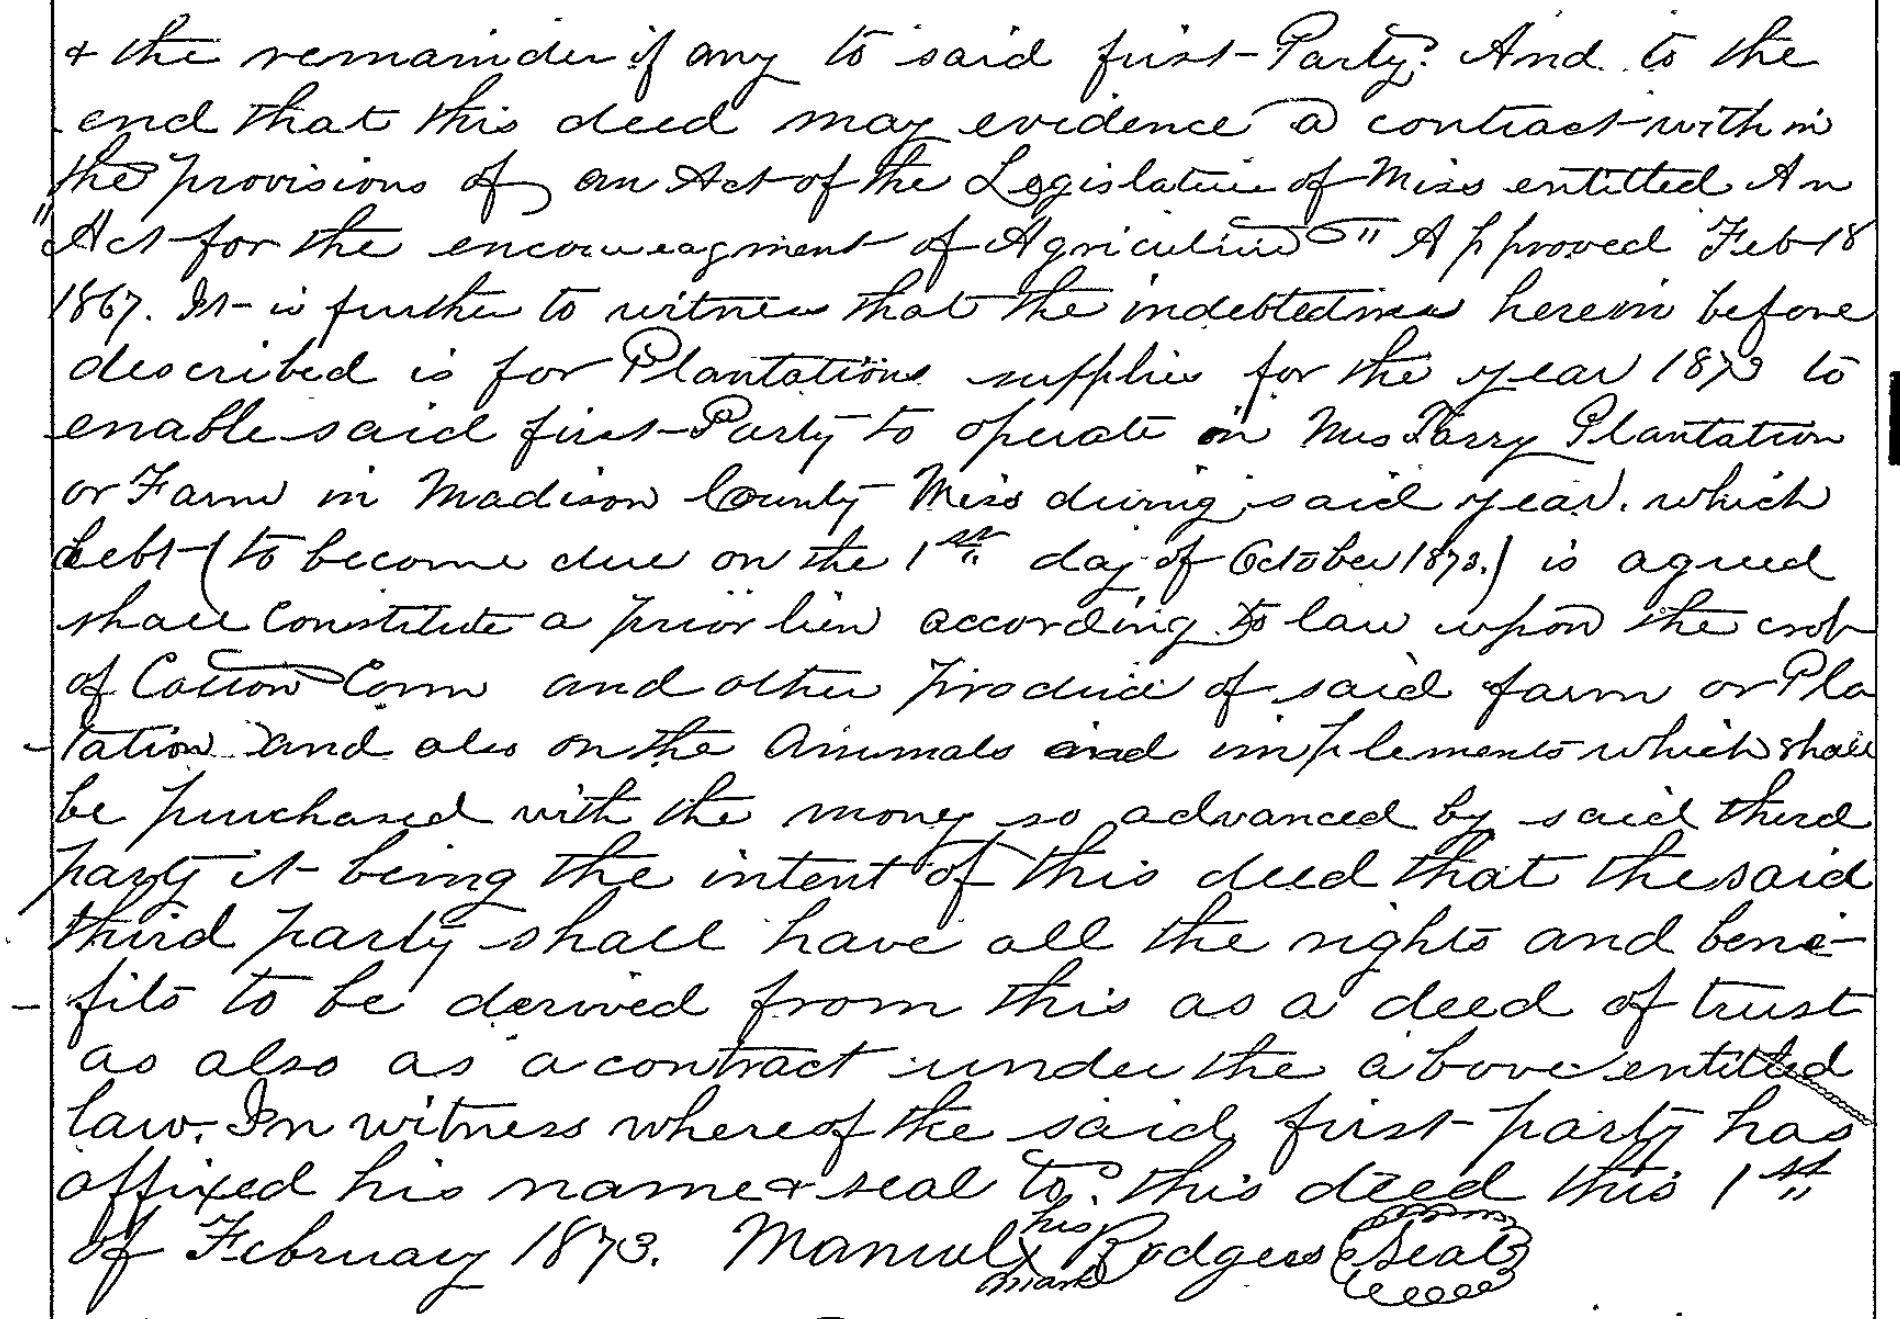 & the remainder if any to said first-Party. And to the
end that this deed may evidence a contract within
the provisions of an Act of the Legislature of Miss entitled An
"Act for the encouragment of Agriculture" Approved Feb 18
1867. It is further to witness that the indebtedness herein before
described is for Plantations supplies for the year 1873 to
enable said first-Party to operate on Mrs Parry Plantation
or Farm in Madison County Miss during said year. which
debt (to become due on the 1st day of October 1873.) is agreed
shall constitute a prior lien according to law upon the crop
of Cotton Corn and other produce of said farm or Pla
-tation and also on the Animals and implements which shall
be purchased with the money so advanced by said third
party it being the intent of this deed that the said
third party shall have all the rights and bene-
-fits to be derived from this as a deed of trust
as also as a contract under the above entitled
law. In witness whereof the said first-party has
affixed his name & seal to this deed this 1st
of February 1873. Manuel his X mark Rodgers Seal